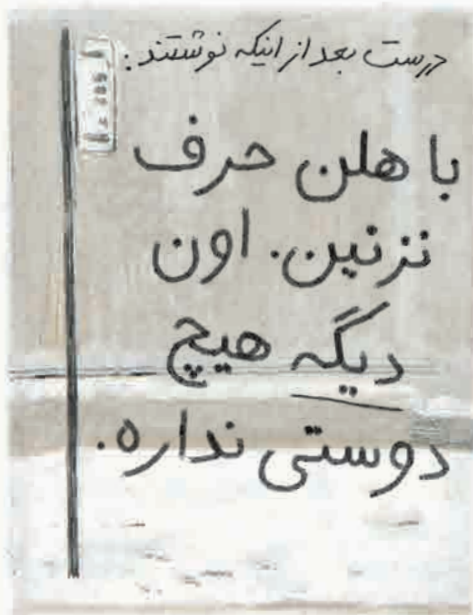 درست بعد از اینکه نوشتند:
با هلن حرف
نزنین. اون
دیگه هیچ
دوستی نداره.